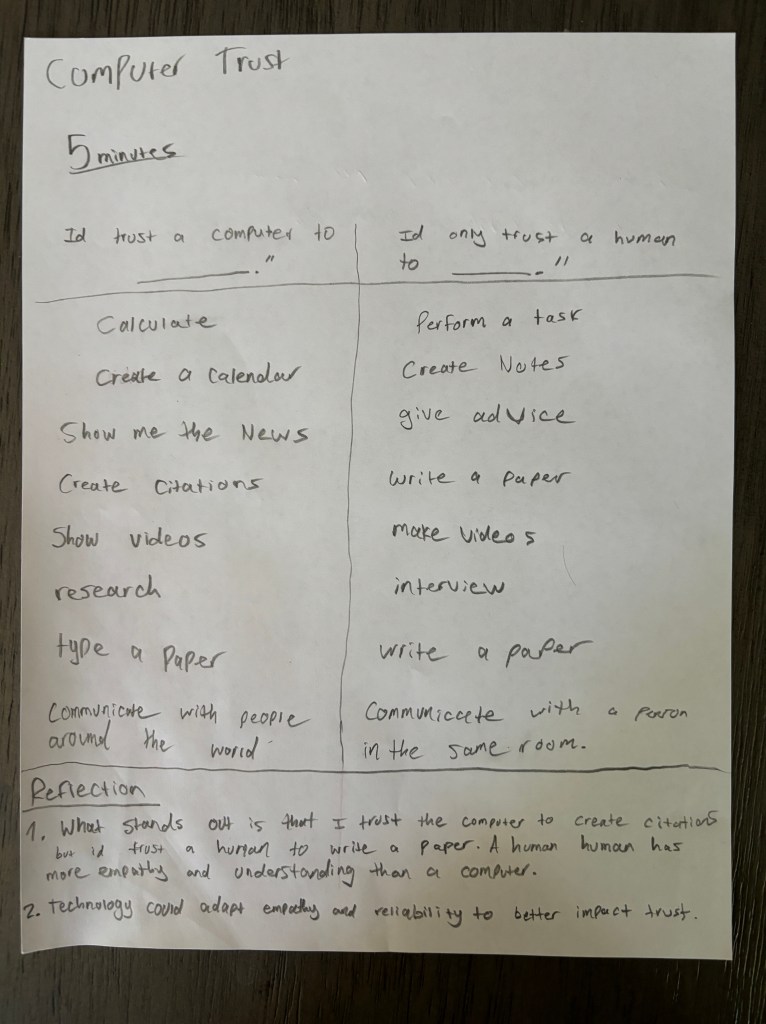 Computer Trust
5 minutes
Id trust a computer to
________."
Id only trust a human
to ________."
Calculate
Create a Calendar
Show me the News
Create Citations
Show videos
research
type a Paper
Communicate with people
around the world
Perform a task
Create Notes
give advice
write a paper
make videos
interview
write a paper
Communiccete with a person
in the same room.
Reflection
1. What stands out is that I trust the computer to create citations
but id trust a human to write a paper. A human human has
more empathy and understanding than a computer.
2. Technology could adapt empathy and reliability to better impact trust.